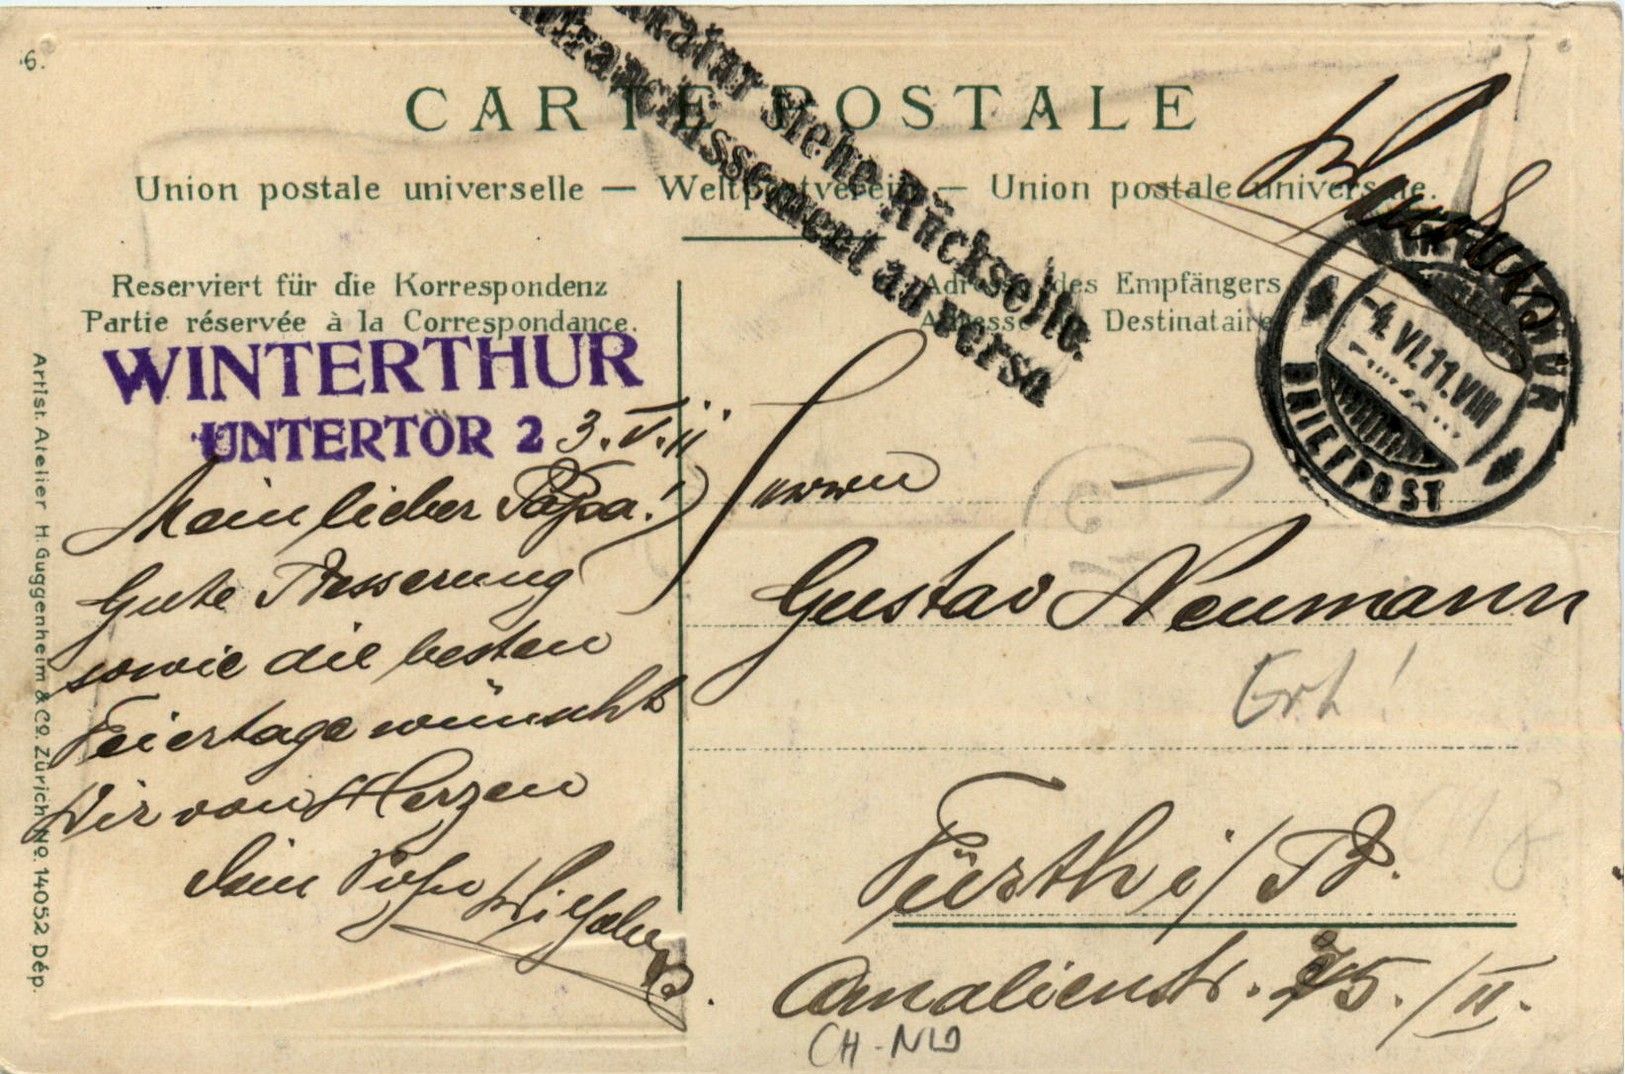 6.
CARTE POSTALE
Union postale universelle — Weltpostverein — Union postale universelle.
Frankatur siehe Rückseite.
Affranchissement au verso
Reserviert für die Korrespondenz
Partie réservée à la Correspondance.
Adresse des Empfängers
Adresse du Destinataire
WINTERTHUR
UNTERTÖR 2
3. V. 11
Mein lieber Papa!
Gute Besserung
sowie die besten
Feiertage wünscht
Dir von Herzen
Dein
WINTERTHUR
-4.VI.11.VIII
BRIEFPOST
Herrn
Gustav Neumann
Fürth i/B.
Amalienstr. 75./II.
CH-NW
Artist. Atelier H. Guggenheim & Co. Zürich No. 14052 Dép.